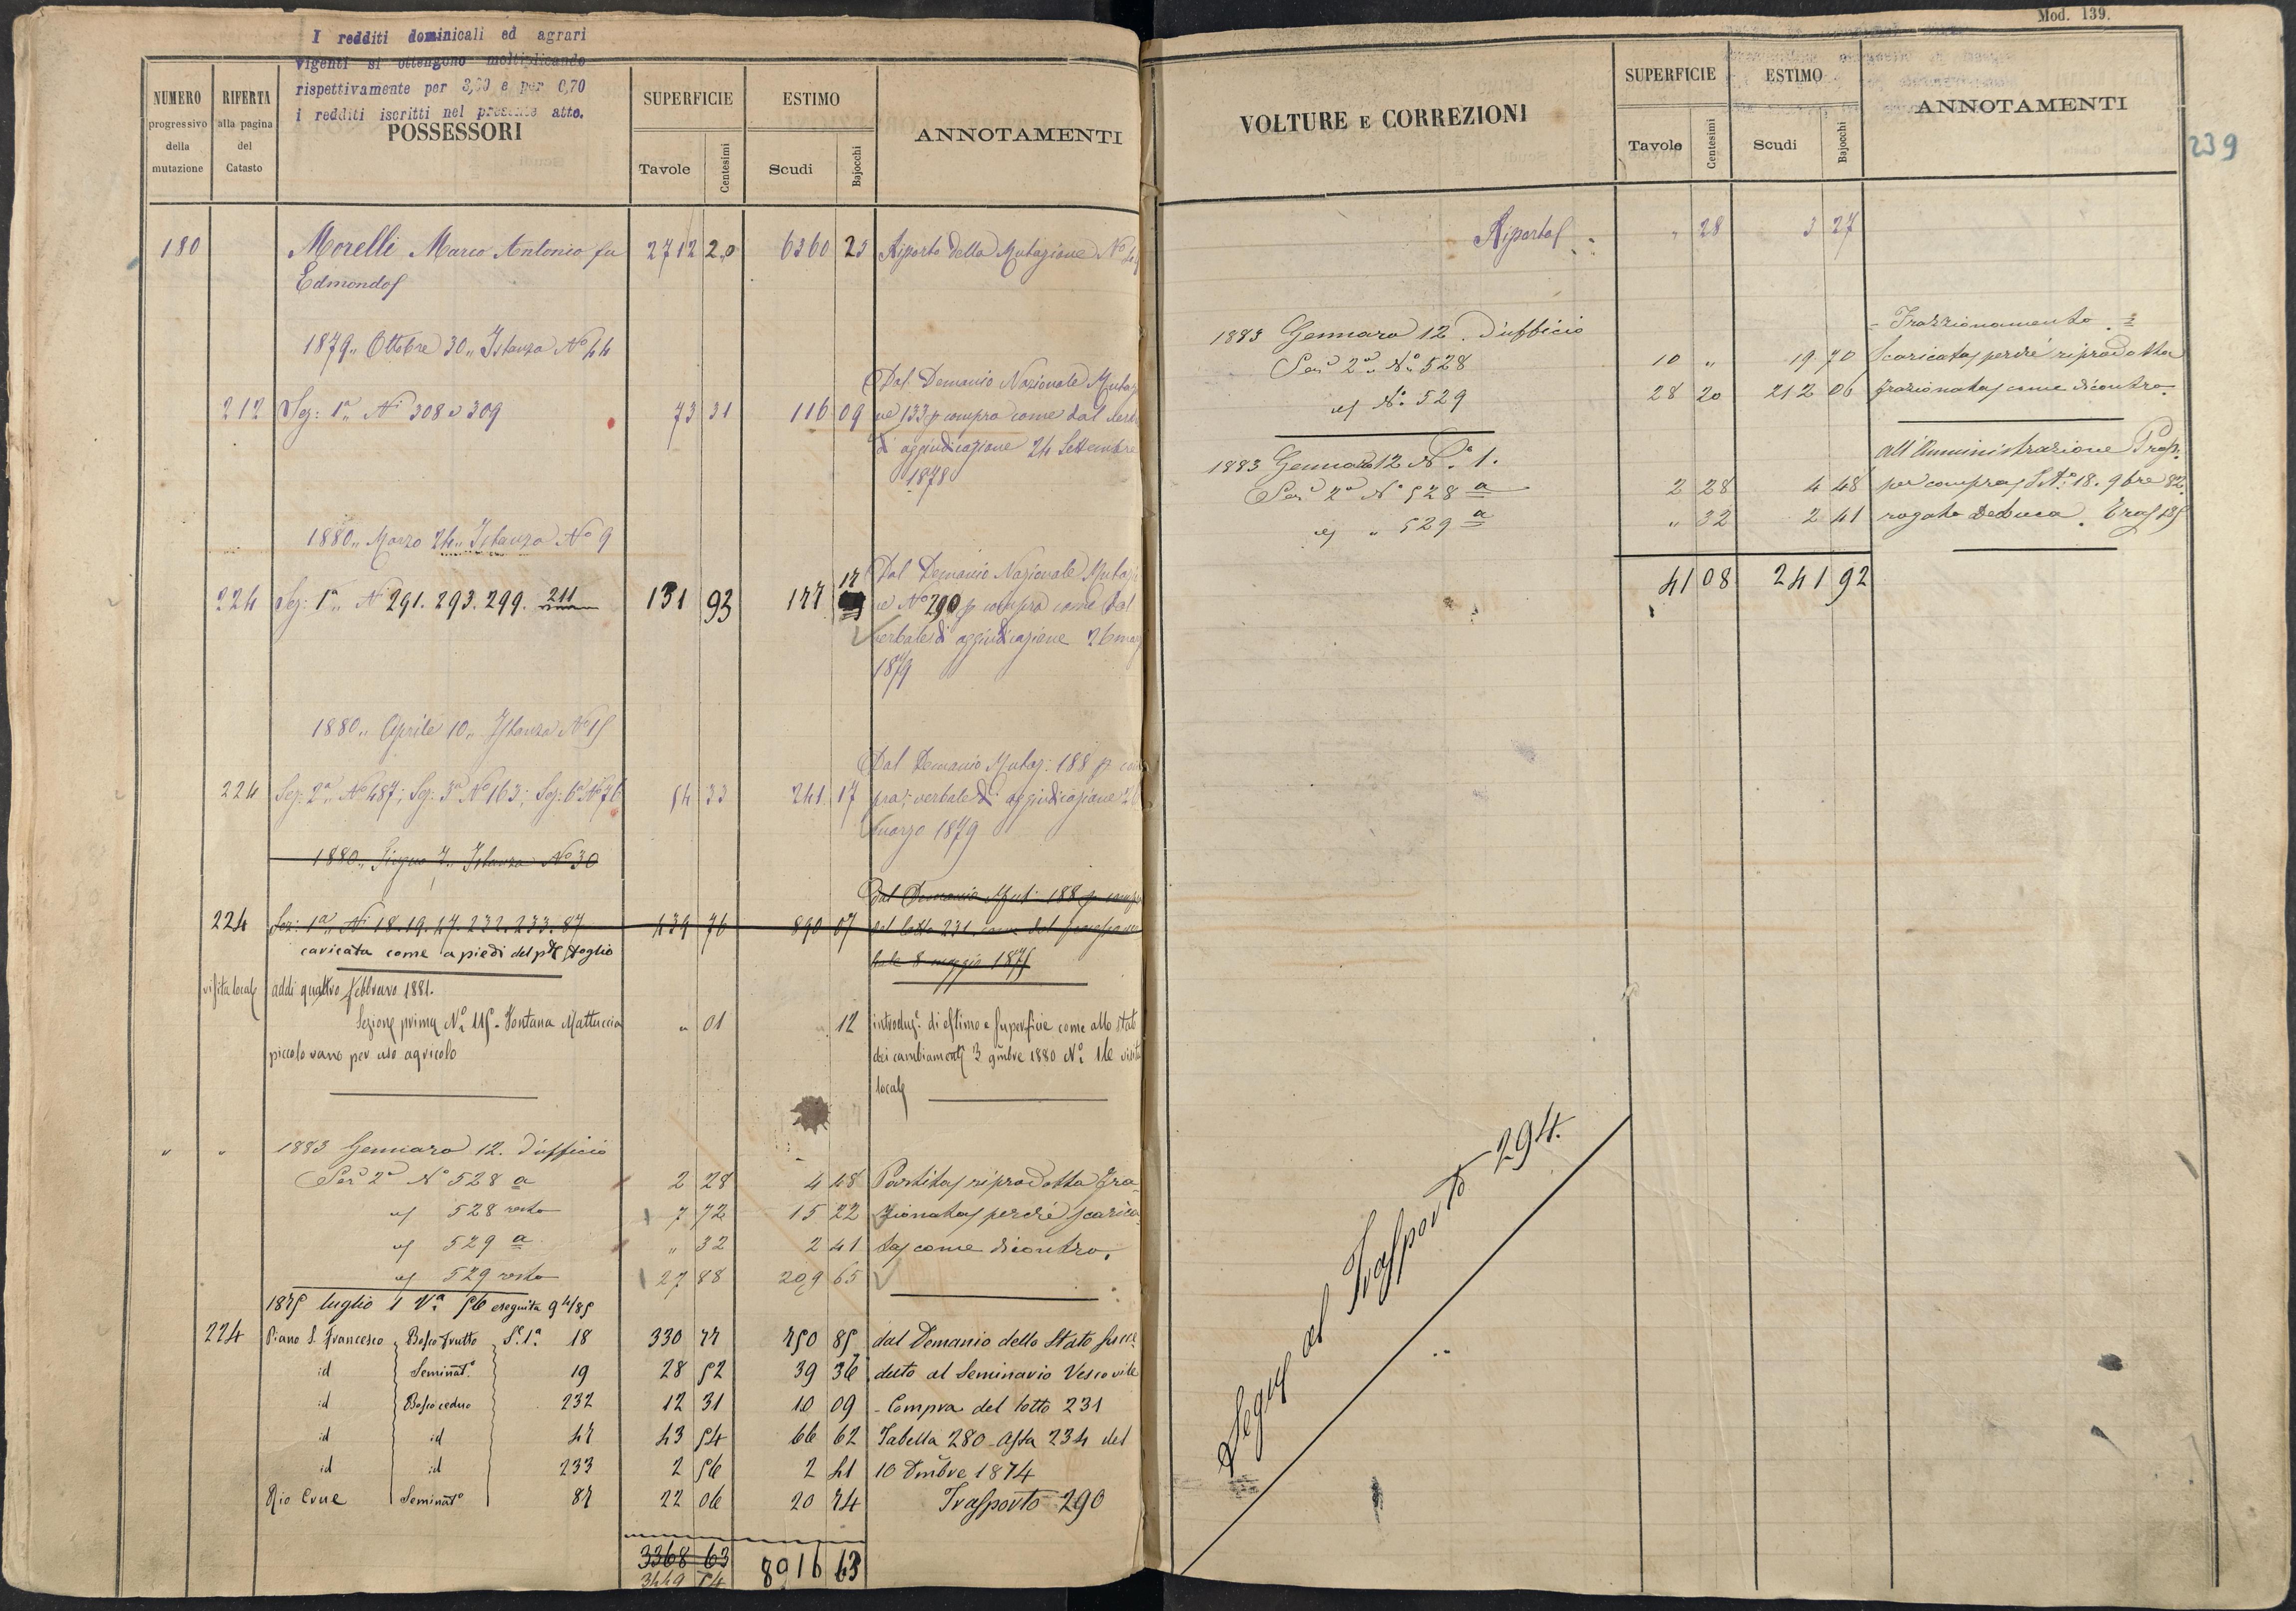 I redditi dominicali ed agrari
vigenti si ottengono moltiplicando
rispettivamente per 3,00 e per 0,70
i redditi iscritti nel presente atto.
NUMERO progressivo della mutazione
RIFERTA alla pagina del Catasto
POSSESSORI
SUPERFICIE
Tavole Centesimi
ESTIMO
Scudi Bajocchi
ANNOTAMENTI
180 Morelli Marco Antonio fu 2712 20 6360 23 Riporto della Mutazione No
Edmondo
1879 „ Ottobre 30 „ Istanza No 44
Dal Demanio Nazionale Mutaz
212 Sez: 1a „ Ni 308 e 309 73 31 116 09 ne 133 p compra come dal
di aggiudicazione 24 Settembre
1878
1880 „ Marzo 24 „ Istanza No 9
Dal Demanio Nazionale Mutaz
224 Sez: 1a „ Ni 291. 293. 299. 211 131 93 177 17 ne No 290 p compra come dal
verbale di aggiudicazione 26
1879
1880 „ Aprile 10 „ Istanza No 15
Dal Demanio Mutaz: 188 p com
224 Sez: 2a „ No 487; Sez: 3a No 163; Sez: 6a No 76 54 33 241 17 pra: verbale di aggiudicazione
marzo 1879
1880 „ Giugno 7 „ Istanza No 30
Dal Demanio Mut: 188 p comp
224 Sez: 1a „ Ni 18. 19. 47. 232. 233. 87 439 76 890 07 del lotto 231 come dal
8 maggio 1875
caricata come a piedi del pte foglio
visita locale addi quattro febbraro 1881.
Sezione prima No 115 - Fontana Mattuccia „ 01 12 introduz. di estimo e superficie come allo stato
piccolo vano per uso agricolo dei cambiamenti 3 9mbre 1880 No 116 visita
locale
„ „ 1883 Gennaro 12. d'ufficio
Sez 2a No 528 a 2 28 4 48 Partita riprodotta fra
es 528 resto 7 72 15 22 zionata perchè scarica
es 529 a „ 32 2 41 ta come dicontro.
es 529 resto 27 88 209 65
1875 luglio 1 Va 56 eseguita 9 /85
224 Piano S. Francesco Bosco frutto Se. 1a 18 330 77 750 85 dal Demanio dello Stato succe
id Seminato 19 28 52 39 36 duto al Seminario Vescovile
id Bosco ceduo 232 12 31 10 09 - Compra del lotto 231
id id 47 43 54 66 62 Tabella 280 Asta 234 del
id id 233 2 56 2 41 10 Dmbre 1874
Rio Crue Seminato 87 22 06 20 74 Trasporto 290
3368 63 8916 63
3449 54
Mod. 139.
VOLTURE E CORREZIONI
SUPERFICIE
Tavole Centesimi
ESTIMO
Scudi Bajocchi
ANNOTAMENTI
239
Riporto „ 28 3 27
1883 Gennaro 12. d'ufficio - Frazzionamento -
Sez 2a No 528 10 „ 19 70 Scaricata perchè riprodotta
es No 529 28 20 212 06 frazionata come dicontro.
1883 Gennaro 12 No 1. all'Amministrazione Prop.
Sez 2a No 528 a 2 28 4 48 per compra 18. 9bre 82.
es „ 529 a „ 32 2 41 rogato DeLuca.
41 08 241 92
Segue al Trasporto 294.